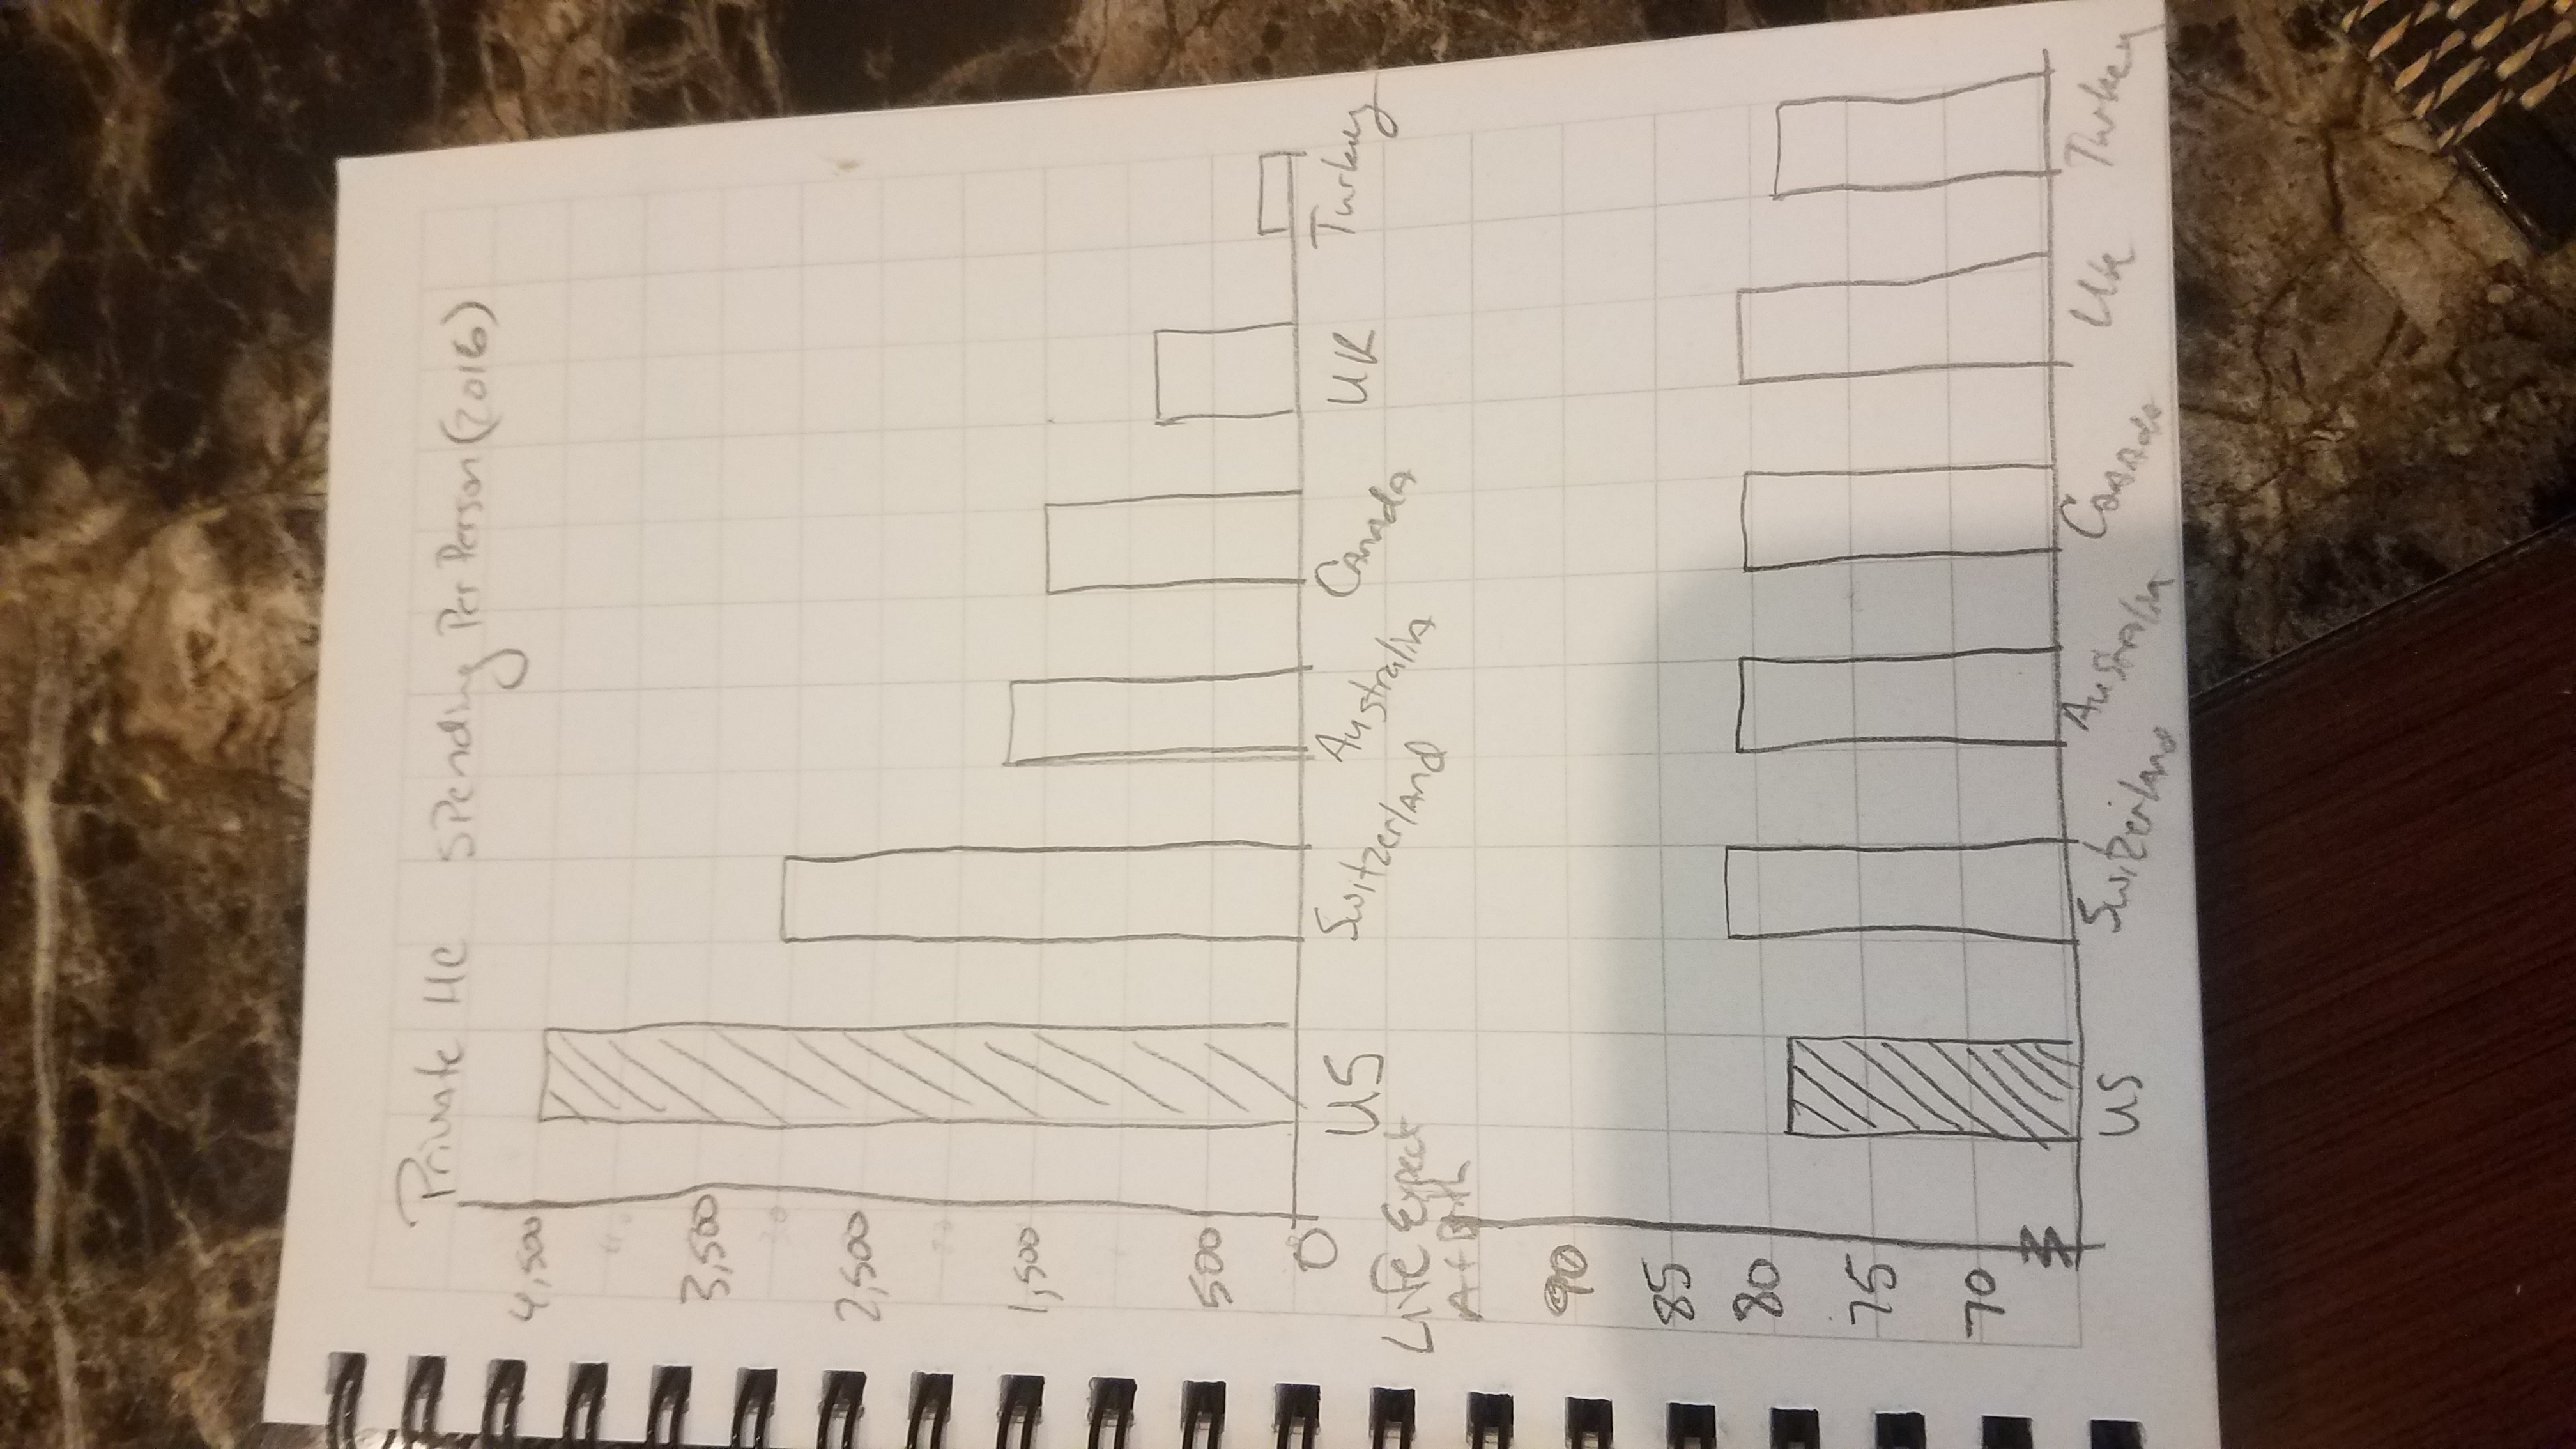 Private HC Spending Per Person (2016)
4,500
3,500
2,500
1,500
500
0
US Switzerland Australia Canada UK Turkey
Life Expect
At Birth
90
85
80
75
70
US Switzerland Australia Canada UK Turkey